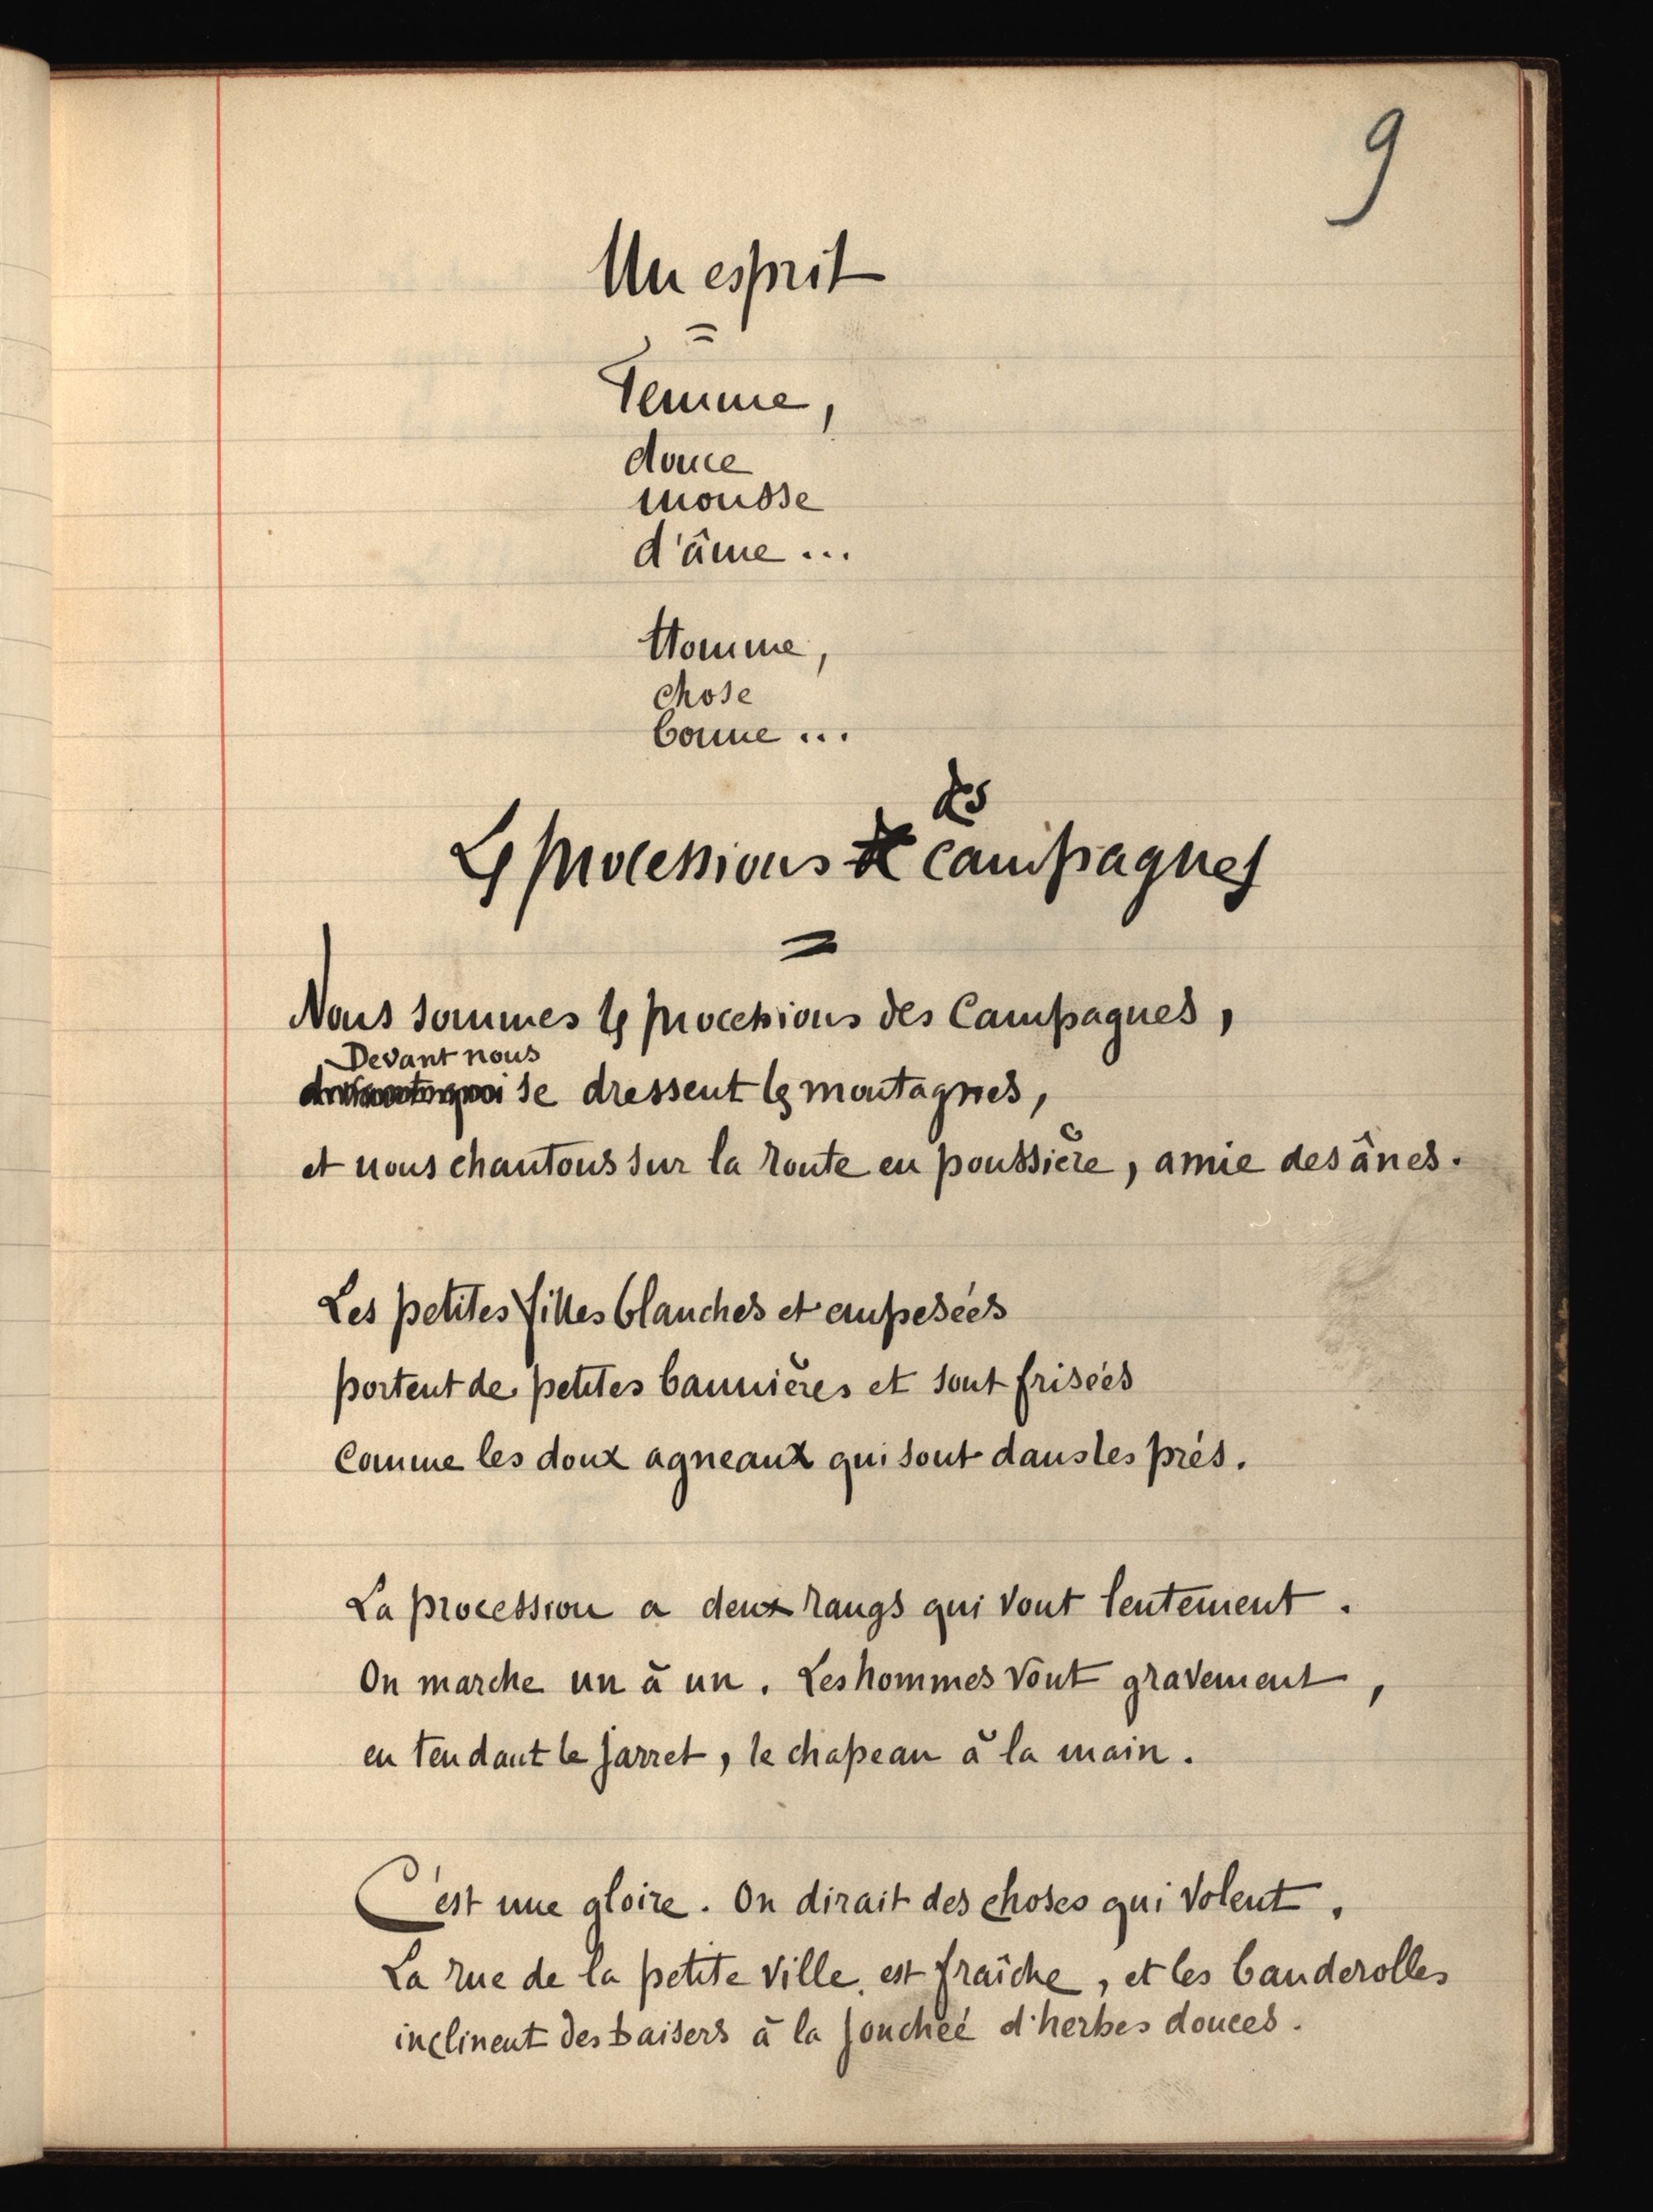 9
Un esprit
=
Femme,
douce
mousse
d'âme ...
Homme,
chose
bonne ...
des
Les processions campagnes
=
Nous sommes les processions des Campagnes,
Devant nous
se dressent les montagnes,
et nous chantons sur la route en poussière, amie des ânes.
Les petites filles blanches et empesées
portent de petites bannières et sont frisées
Comme les doux agneaux qui sont dans les prés.
La procession a deux rangs qui vont lentement.
On marche un à un. Les hommes vont gravement,
en tendant le jarret, le chapeau à la main.
C'est une gloire. On dirait des choses qui volent.
La rue de la petite ville est fraîche, et les banderolles
inclinent des baisers à la jonchée d'herbes douces.